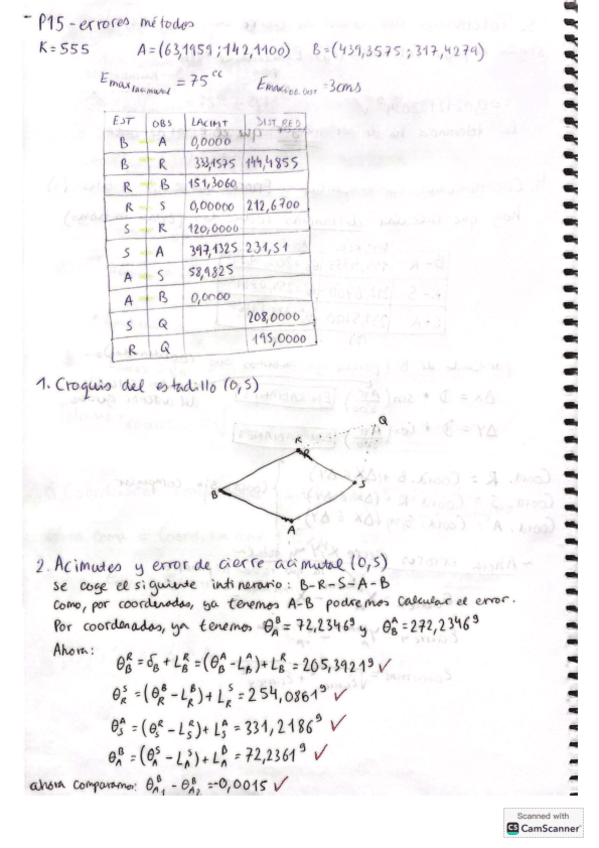 - P15 - errores métodos
K = 555 A = (63,1959 ; 142,1100) B = (439,3575 ; 317,4279)
Emax acimutal = 75ᶜᶜ Emax = 3cms
EST OBS LACIMT DIST. RED
B A 0,0000
B R 333,1575 144,4855
R B 151,3060
R S 0,00000 212,6700
S R 120,0000
S A 397,1325 231,51
A S 58,9825
A B 0,0000
S Q 208,0000
R Q 195,0000
1. Croquis del estadillo (0,5)
R
Q
B
S
A
2. Acimutes y error de cierre acimutal (0,5)
Se coge el siguiente intinerario: B-R-S-A-B
como, por coordenadas, ya tenemos A-B podremos calcular el error.
Por coordenadas, ya tenemos θ_A^B = 72,2346ᵍ y θ_B^A = 272,2346ᵍ
Ahora:
θ_B^R = δ_B + L_B^R = (θ_B^A - L_B^A) + L_B^R = 205,3921ᵍ ✓
θ_R^S = (θ_R^B - L_R^B) + L_R^S = 254,0861ᵍ ✓
θ_S^A = (θ_S^R - L_S^R) + L_S^A = 331,2186ᵍ ✓
θ_A^B = (θ_A^S - L_A^S) + L_A^B = 72,2361ᵍ ✓
ahora comparamos: θ_A1^B - θ_A2^B = -0,0015 ✓
Scanned with
CS CamScanner